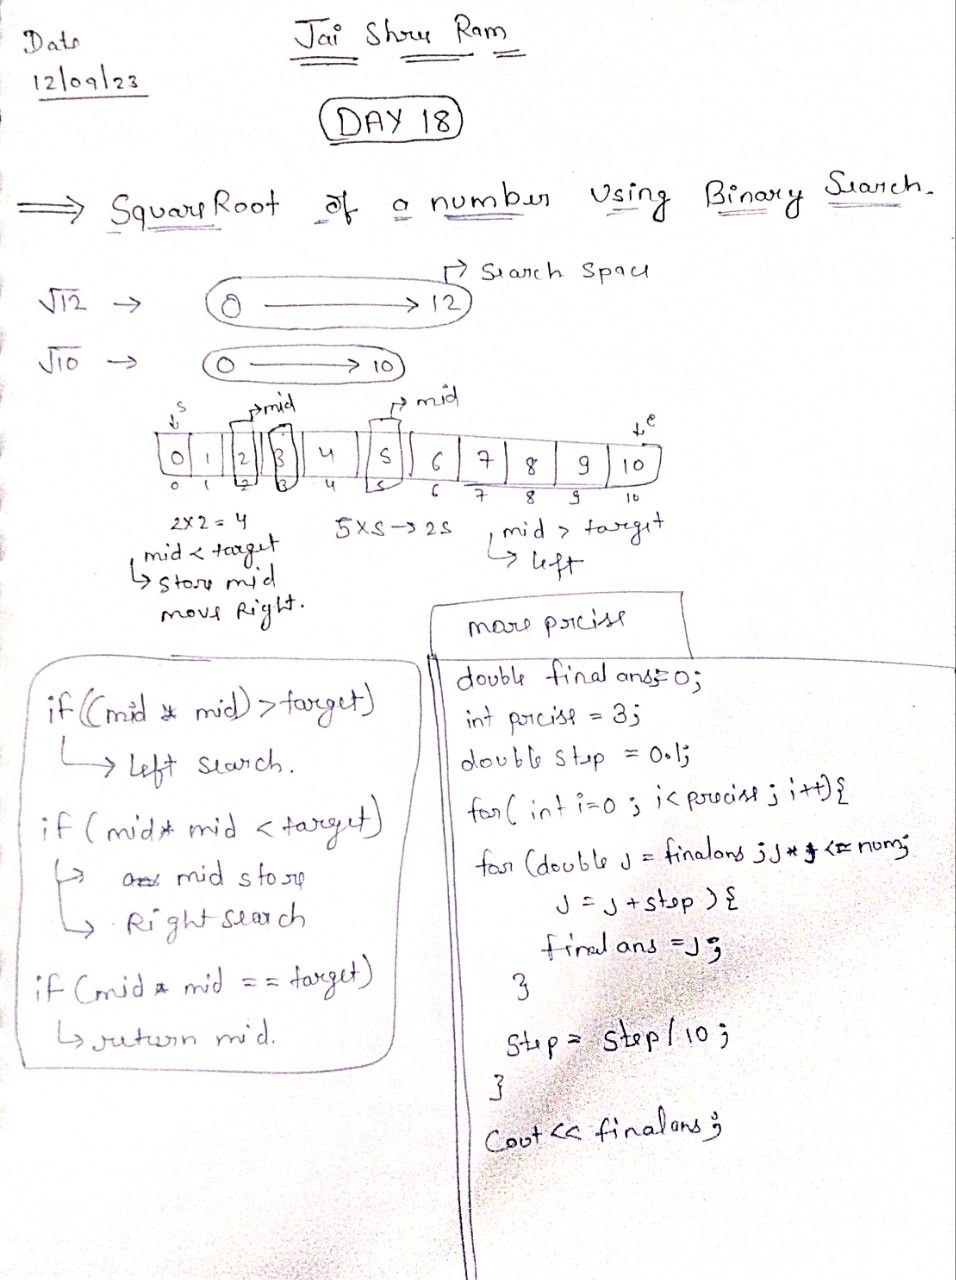 Date
12/09/23
Jai Shree Ram
DAY 18
⟹ Square Root of a number using Binary Search.
→ Search Space
√12 → 0 → 12
√10 → 0 → 10
s → mid → mid e
0 1 2 3 4 5 6 7 8 9 10
0 1 2 3 4 5 6 7 8 9 10
2 x 2 = 4
mid < target
↳ store mid
move Right.
5 x 5 → 25
mid > target
↳ left
if((mid * mid) > target)
↳ left search.
if (mid * mid < target)
↳ mid store
↳ Right search
if (mid * mid == target)
↳ return mid.
more precise
double finalans = 0;
int precise = 3;
double step = 0.1;
for( int i=0 ; i< precise ; i++){
for (double j = finalans ; j * j <= num;
j = j + step ) {
finalans = j;
}
step = step / 10 ;
}
cout << finalans ;